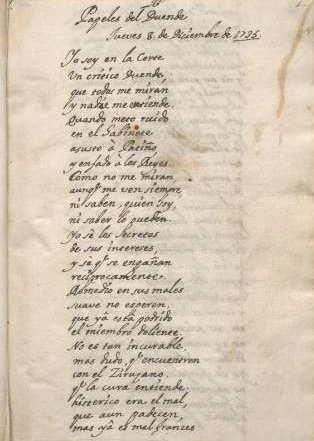 Papeles del Duende
Jueves 8 de Diciembre de 1735.
Yo soy en la Corte
Un critico Duende,
que todos me miran,
y nadie me entiende.
Quando meto ruido
en el Gabinete
asusto à Patiño,
y enfado à los Reyes.
Como no me miran,
aunqᵉ me ven siempre
ni saben, quien soy,
ni saber lo pueden.
Yo sè los secretos
de sus intereses,
y sè qᵉ se engañan
reciprocamente.
Remedio en sus males
suave no esperen,
que yà està podrido
el miembro doliente.
No es tan incurable,
mas dudo, qᵉ encuentren
con el Zirujano,
qᵉ la cura entiende.
histerico era el mal,
que aun padecen,
mas yà es mal frances